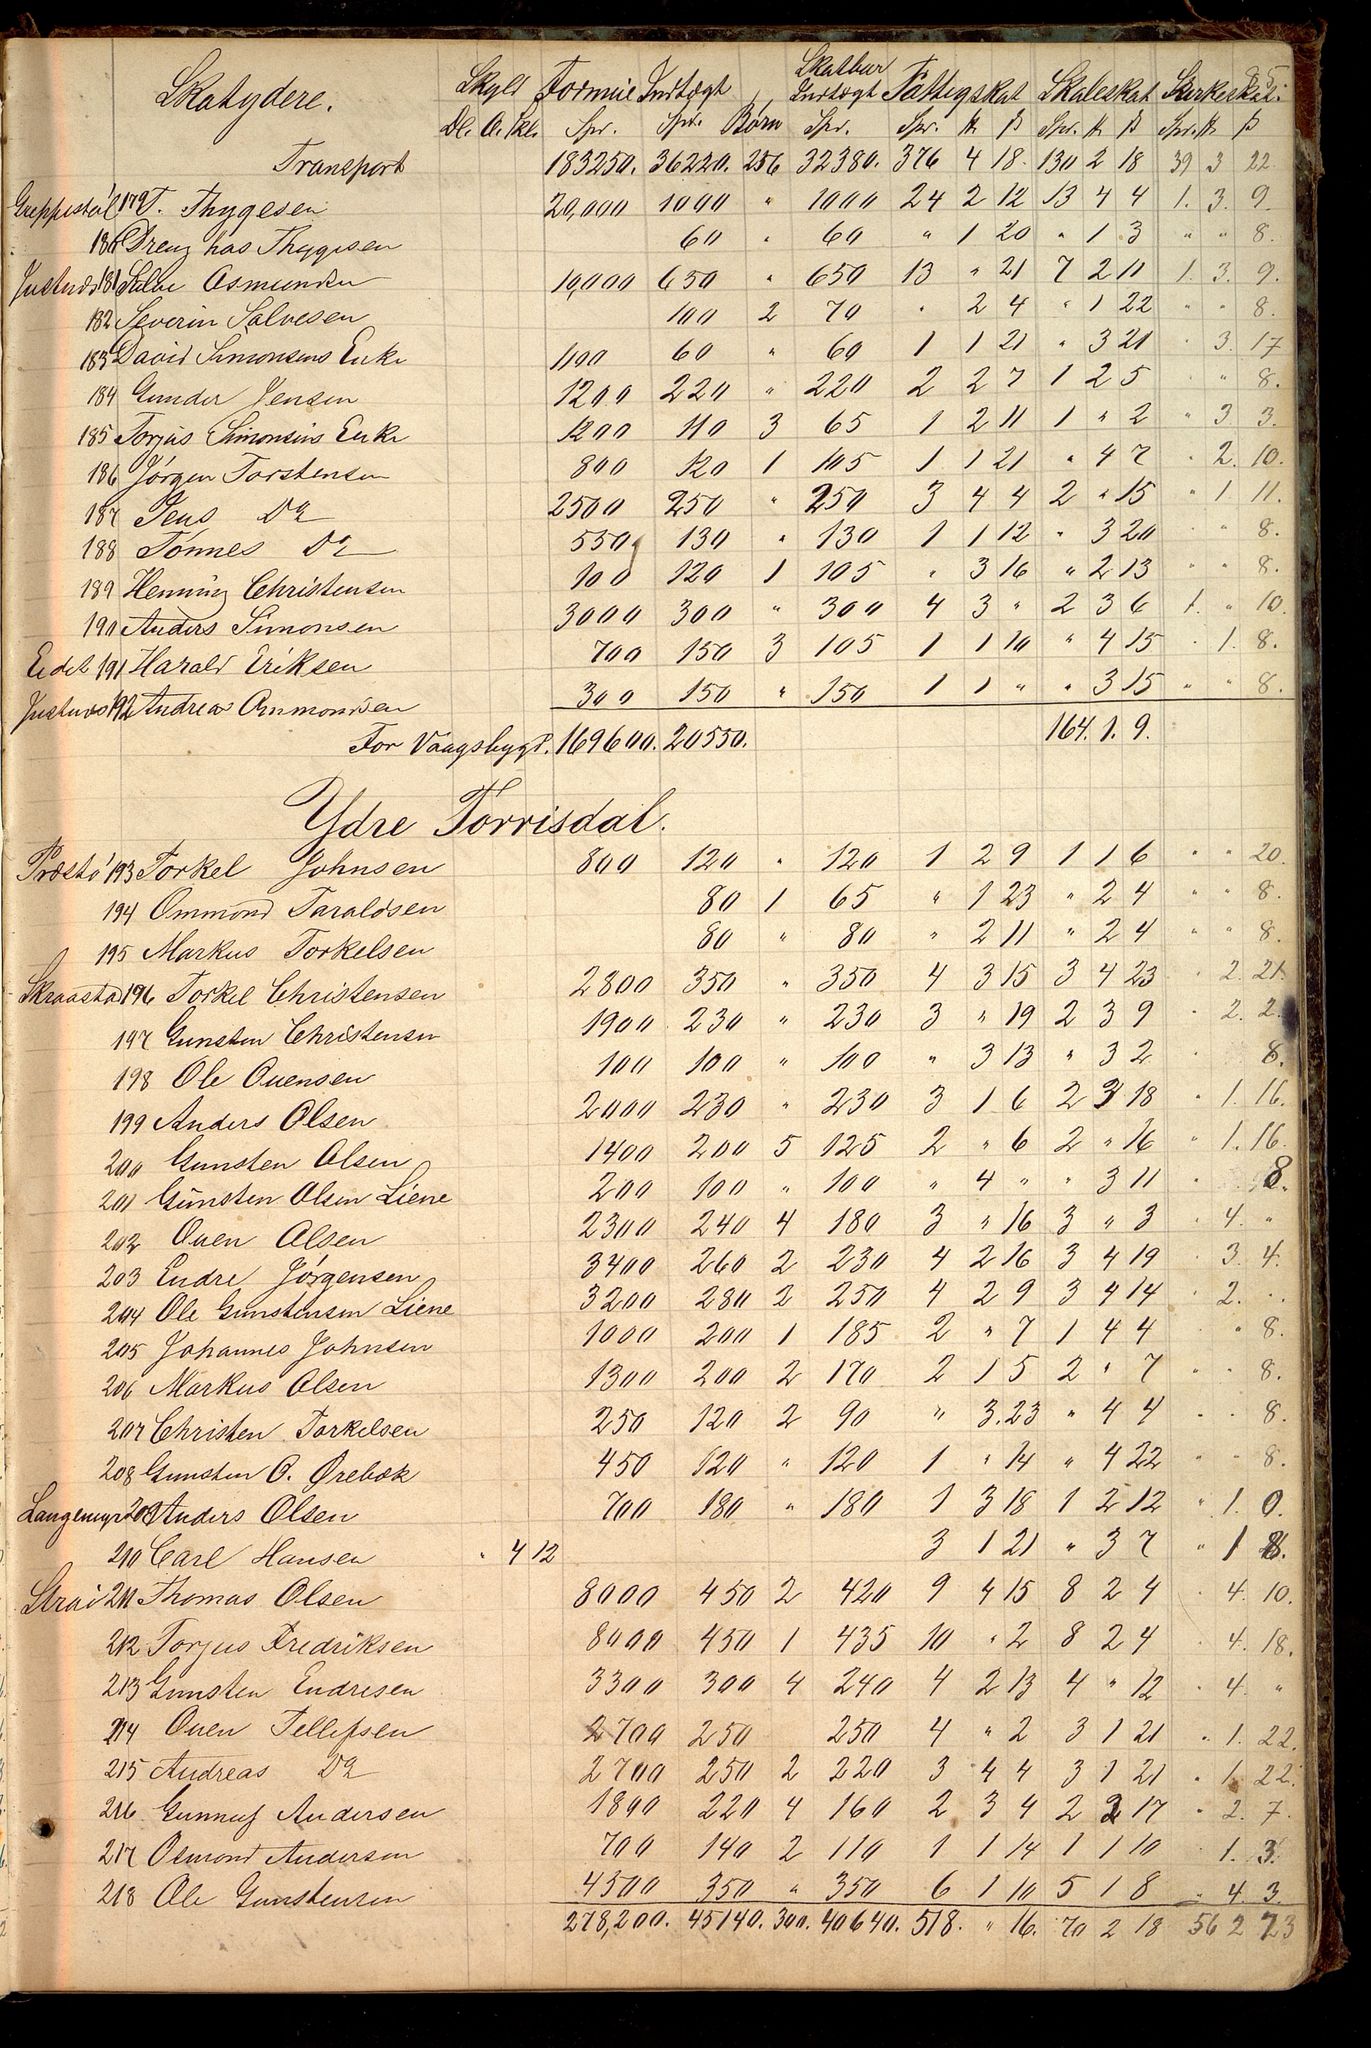 Skatydere. Skyld Formue Indtægt Børn Skatbar Indtægt Fattigskat Skoleskat Kirkeskat.
Dl. O. Skl. Spr. Spr. Spr. Spr. K ß Spr. K ß Spr. K ß
Transport 183250. 36220. 256 32380. 376 4 18. 130 2 18 39 3 22.
Greppestøl 179 T. Thygesen 20,000 1000 " 1000 24 2 12 13 4 4 1. 3. 9.
180 Dreng hos Thygesen 60 " 60 " 1 20 " 1 3 " " 8.
Justnes 181 Salve Osmundsen 10,000 650 " 650 13 " 21 7 2 11 1. 3. 9.
182 Severin Salvesen 100 2 70 " 2 4 " 1 22 " " 8.
183 David Simonsens Enke 1100 60 " 60 1 1 21 " 3 21 " 3. 17
184 Gunder Jensen 1200 220 " 220 2 2 7 1 2 5 " " 8.
185 Torjus Simonsens Enke 1200 110 3 65 1 2 11 1 " 2 " 3 3.
186 Jørgen Torstensen 800 120 1 105 1 1 21 " 4 7 " 2. 10.
187 Jens Do 2500 250 " 250 3 4 4 2 " 15 " 1 11.
188 Tønnes Do 550 130 " 130 1 1 12 " 3 20 " 8.
189 Henning Christensen 100 120 1 105 " 3 16 " 2 13 " " 8.
190 Anders Simonsen 3000 300 " 300 4 3 " 2 3 6 1. " 10.
Eidet 191 Harald Eriksen 700 150 3 105 1 1 10 " 4 15 " 1. 8.
Justnes 192 Andreas Ommondsen 300 150 " 150 1 1 " " 3 15 " " 8.
For Vaagsbygd. 169600. 20550. 164. 1. 9.
Ydre Torrisdal.
Præstø 193 Torkel Johnsen 800 120 " 120 1 2 9 1 1 6 " " 20.
194 Ommond Taraldsen 80 1 65 " 1 23 " 2 4 " " 8.
195 Markus Torkelsen 80 " 80 " 2 11 " 2 4 " " 8.
Skraastad 196 Torkel Christensen 2800 350 " 350 4 3 15 3 4 23 " 2. 21.
197 Gunsten Christensen 1900 230 " 230 3 " 19 2 3 9 " 2. 2.
198 Ole Ouensen 100 100 " 100 " 3 13 " 3 2 8.
199 Anders Olsen 2000 230 " 230 3 1 6 2 3 18 " 1. 16.
200 Gunsten Olsen 1400 200 5 125 2 " 6 2 " 16 " 1. 16.
201 Gunsten Olsen Liene 200 100 " 100 " 4 " " 3 11 " 8.
202 Ouen Olsen 2300 240 4 180 3 " 16 3 " 3 " 4. "
203 Endre Jørgensen 3400 260 2 230 4 2 16 3 4 19 " 3. 4.
204 Ole Gunstensen Liene 3200 280 2 250 4 2 9 3 4 14 " 2. "
205 Johannes Johnsen 1000 200 1 185 2 " 7 1 4 4 " 8.
206 Markus Olsen 1300 200 2 170 2 1 5 2 " 7 " " 8.
207 Christen Torkelsen 250 120 2 90 " 3. 23 " 4 4 " " 8.
208 Gunsten O. Ørebæk 450 120 " 120 1 " 14 " 4 22 " " 8.
Langemyr 209 Anders Olsen 700 180 " 180 1 3 18 1 2 12 " 1. 0.
210 Carl Hansen " 4 12 3 1 21 " 3 7 " 1 8.
Strai 211 Thomas Olsen 8000 450 2 420 9 4 15 8 2 4 " 4. 10.
212 Torjus Fredriksen 8000 450 1 435 10 " 2 8 2 4 " 4. 18.
213 Gunsten Endresen 3300 300 4 240 4 2 13 4 " 12 " 4. "
214 Ouen Tellefsen 2700 250 250 4 " 2 3 1 21 " 1. 22.
215 Andreas Do 2700 250 2 220 3 4 4 3 1 21 " 1. 22.
216 Gunnuf Andersen 1800 220 4 160 2 3 4 2 2 17 " 2. 7.
217 Osmond Andersen 700 140 2 110 1 1 14 1 1 10 1. 3.
218 Ole Gunstensen 4500 350 " 350 6 1 10 5 1 8 " 4. 3.
278,200. 45140. 300. 40640. 518. " 16. 70 2 18 56 2 23